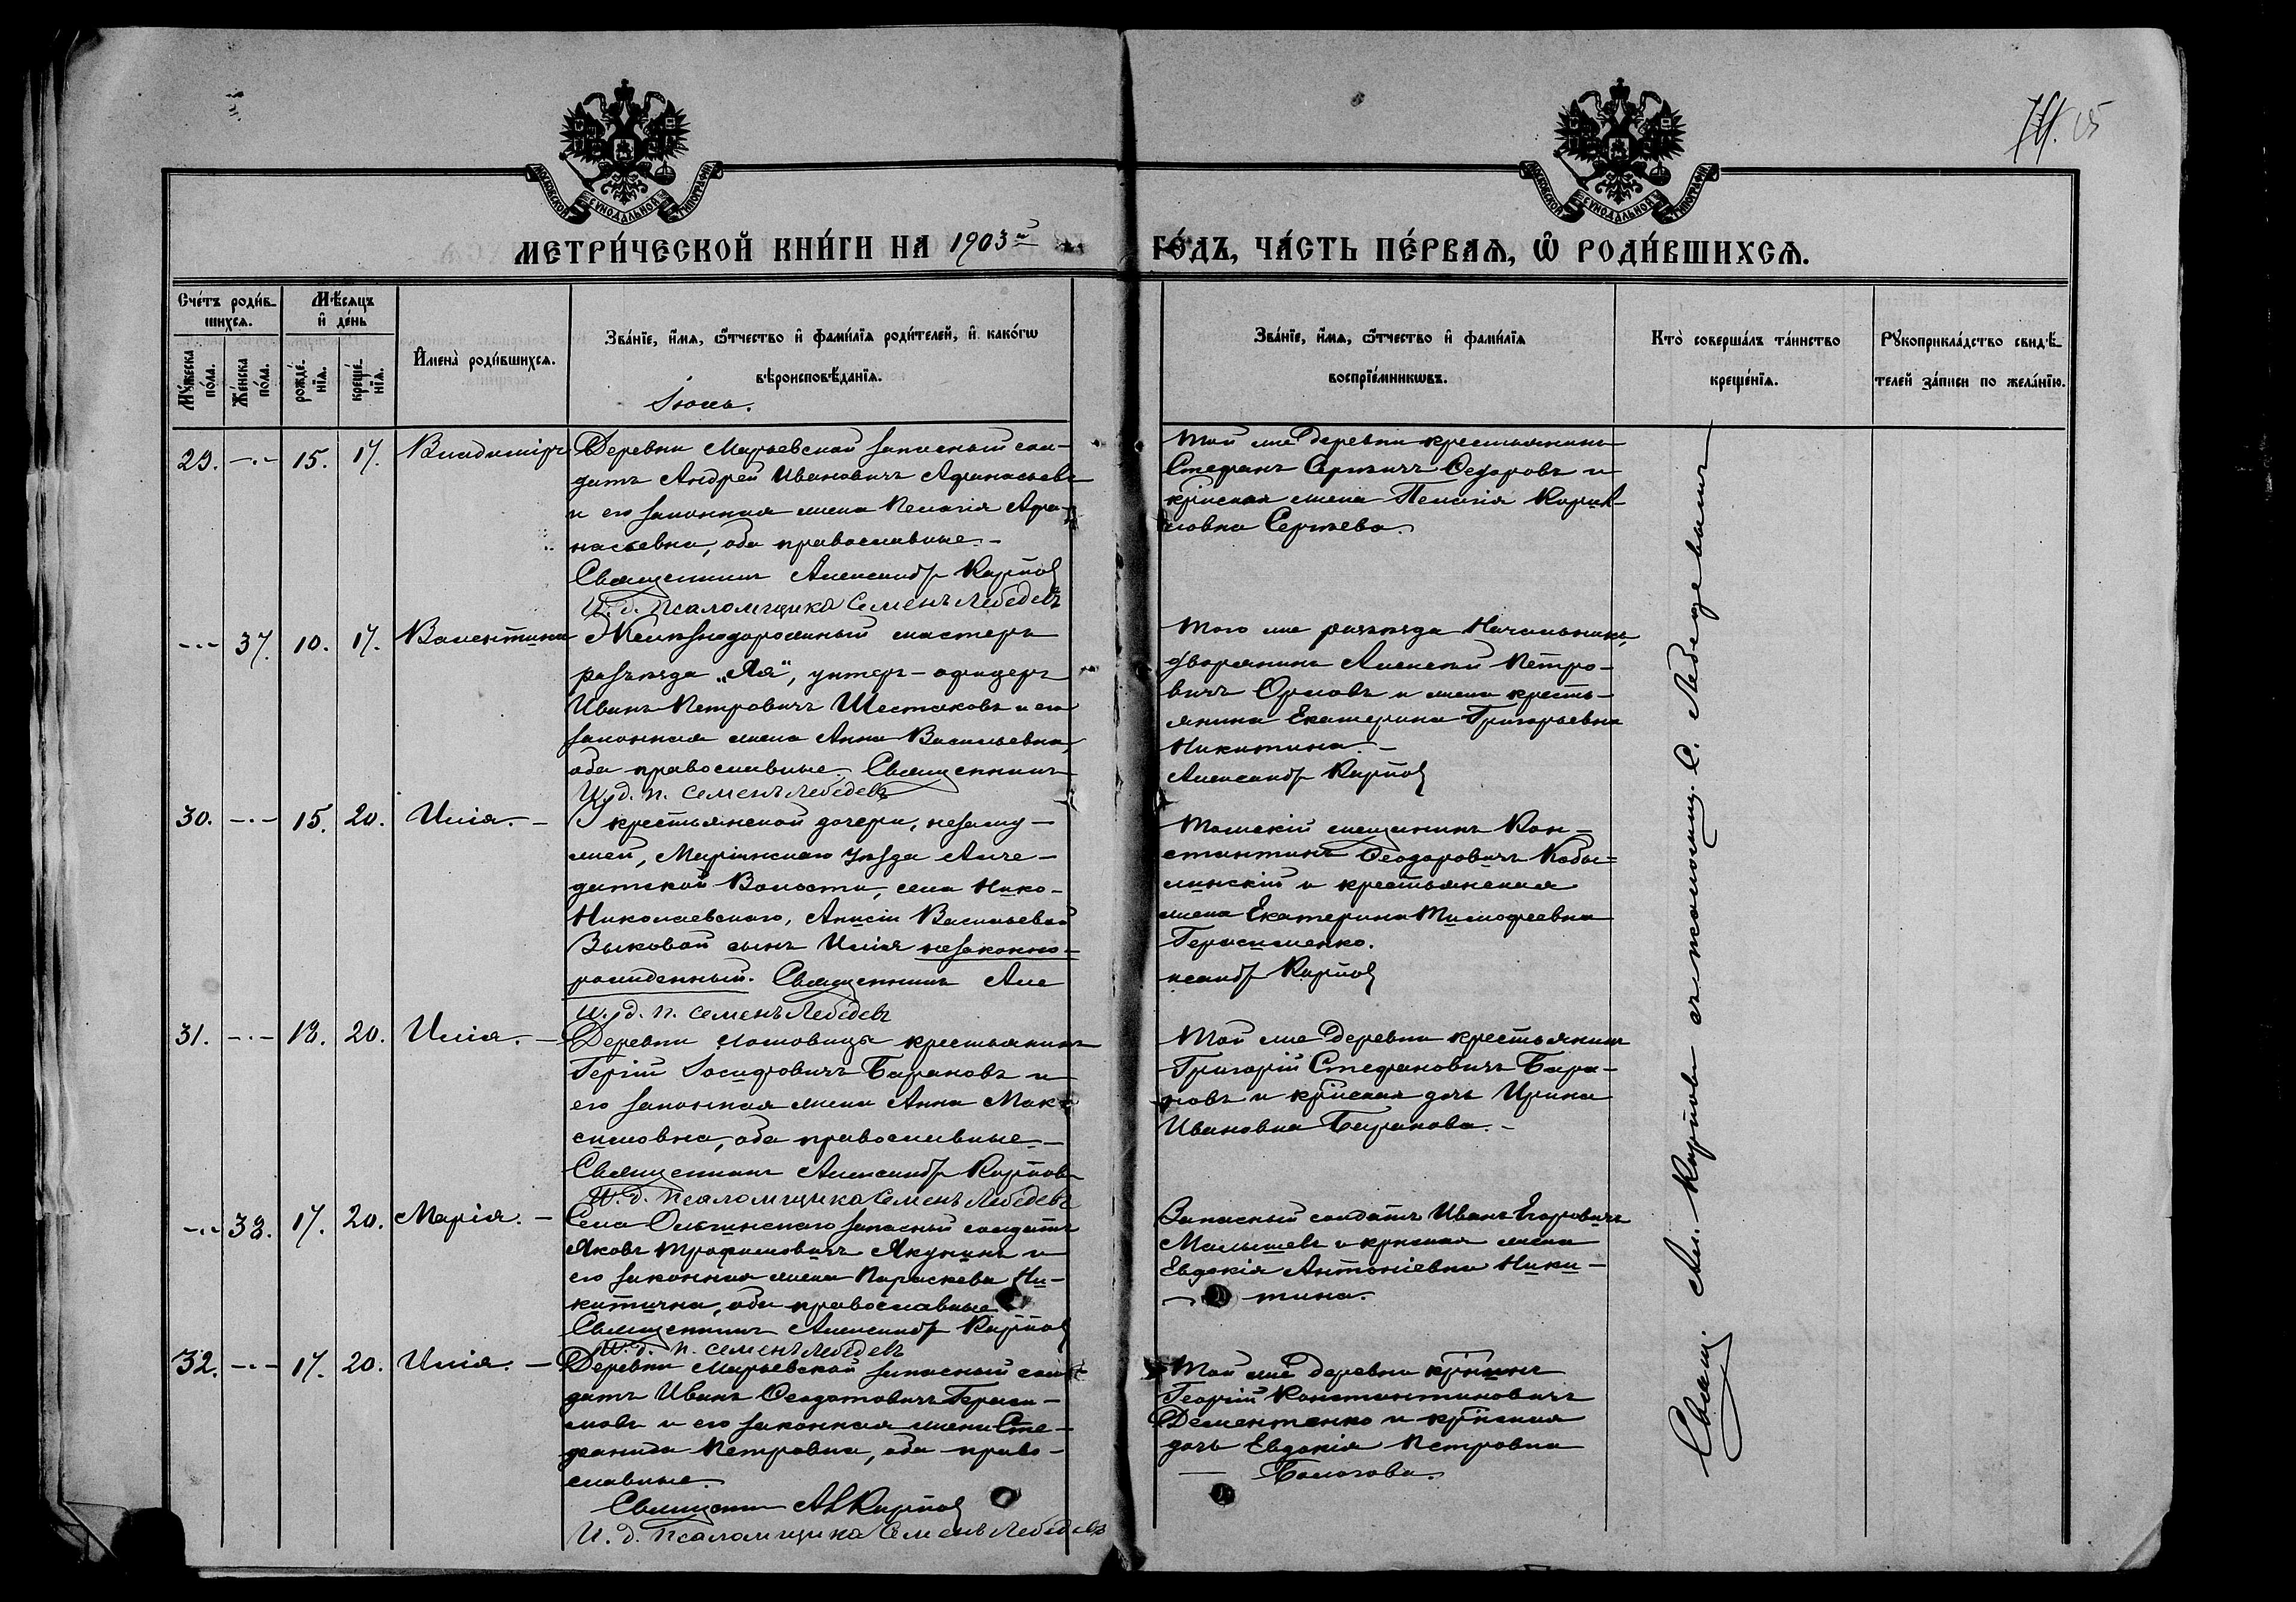 МОСКОВСКОЙ СѴНОДАЛЬНОЙ ТИПОГРАФІИ
МОСКОВСКОЙ СѴНОДАЛЬНОЙ ТИПОГРАФІИ
МЕТРИ́ЧЕСКОЙ КНИ́ГИ НА 1903й
ГО́ДЪ, ЧА́СТЬ ПЕ́РВАѦ, Ѡ҆ РОДИ́ВШИХСѦ.
Сче́тъ роди́в-
шихсѧ.
Мѣ́сѧцъ
и҆ де́нь
Мꙋ́жеска
по́ла.
Же́нска
по́ла.
рожде́-
нїѧ.
креще́-
нїѧ.
И҆мена̀ роди́вшихсѧ.
Зва́нїе, и҆́мѧ, ѻ҆́тчество и҆ фами́лїѧ роди́телей, и҆ како́гѡ
вѣроисповѣ́данїѧ.
Зва́нїе, и҆́мѧ, ѻ҆́тчество и҆ фами́лїѧ
воспрїе́мникѡвъ.
Кто̀ соверша́лъ та́инство
креще́нїѧ.
Рꙋкоприкла́дство свидѣ́-
телей за́писи по жела́нїю.
Іюнь.
29. -·- 15. 17. Владиміръ
Деревни Марьевской запасный сол-
датъ Андрей Ивановичъ Афанасьевъ
и его законная жена Пелагія Афа-
насьевна, оба православные.-
Священникъ Александр Карпов
И. д. псаломщика Семенъ Лебедевъ
Той же деревни крестьянинъ
Стефанъ Сергѣевичъ Ѳедоровъ и
кр̃нская жена Пелагія Кирил-
ловна Сергѣева.
-·- 37. 10. 17. Валентина
Желѣзнодорожный мастеръ
разъѣзда „Яя", унтеръ-офицеръ
Иванъ Петровичъ Шестаковъ и его
законная жена Анна Васильевна,
оба православные. Священникъ
И. д. п. Семенъ Лебедевъ
Того же разъѣзда Начальникъ,
дворянинъ Алексѣй Петро-
вичъ Орловъ и жена кресть-
янина Екатерина Григорьевна
Никитина.-
Александр Карпов
30. -·- 15. 20. Илія.-
У крестьянской дочери, незаму-
жней, Маріинскаго уѣзда Алче-
датской Волости, села Нико-
Николаевскаго, Анисіи Васильевой
Зыковой сынъ Илія незаконно-
рожденный. Священникъ Але
И. д. п. Семенъ Лебедевъ
Томскій мѣщанинъ Кон-
стантинъ Ѳеодоровичъ Кобы-
линскій и крестьянская
жена Екатерина Тимоѳеевна
Герасименко.
ксандр Карпов
31. -·- 18. 20. Илія.-
Деревни крестьянинъ
Іосифовичъ Барановъ и
его законная жена Анна Мак-
симовна, оба православные.-
Священникъ Александр Карпов
И. д. псаломщика Семенъ Лебедевъ
Той же деревни крестьянинъ
Григорій Стефановичъ Бара-
новъ и кр̃нская дочь Ирина
Ивановна Баранова.-
-·- 38. 17. 20. Марія.-
Села Ольгинскаго запасный солдатъ
Яковъ Трофимовичъ Якунинъ и
его законная жена Параскева Ни-
китична, оба православные
Священникъ Александр Карпов
И. д. п. Семенъ Лебедевъ
Запасный солдатъ Иванъ Егоровичъ
Малышевъ и кр̃нская жена
Евдокія Антоніевна Ники-
тина.
32. -·- 17. 20. Илія.-
Деревни Марьевской запасный сол-
датъ Иванъ Ѳеодотовичъ Гераси-
мовъ и его законная жена Сте-
фанида Петровна, оба право-
славные.
Священник Ал Карпов
И. д. псаломщика Семенъ Лебедевъ
Той же деревни кр̃нинъ
Георгій Константиновичъ
Дементенко и кр̃нская
дочь Евдокія Петровна
Бологова.
Свящ. Ал. Карповъ съ псаломщ. С. Лебедевымъ